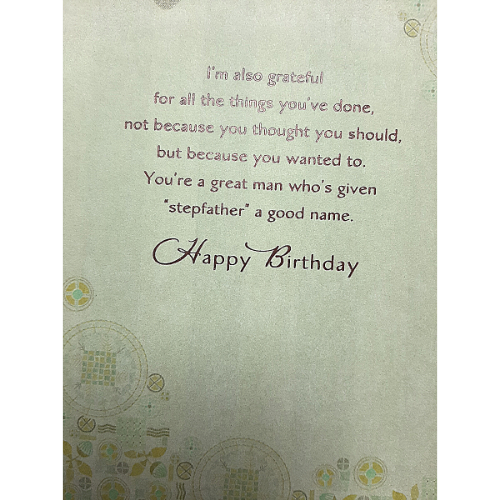 I'm also grateful
for all the things you've done,
not because you thought you should,
but because you wanted to.
You're a great man who's given
"stepfather" a good name.
Happy Birthday